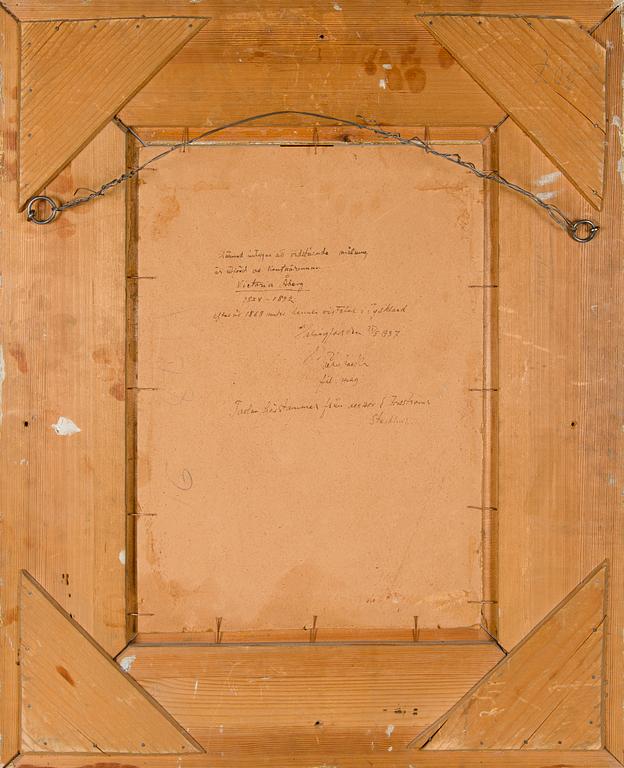 Härmed intygas att vidstående målning
är utförd av konstnärinnan
Victoria Åberg
1824-1892
efter år 1869 under hennes vistelse i Tyskland
Helsingfors den 25/5 1937
fil. mag
Tavlan härstammar från
Stockholm